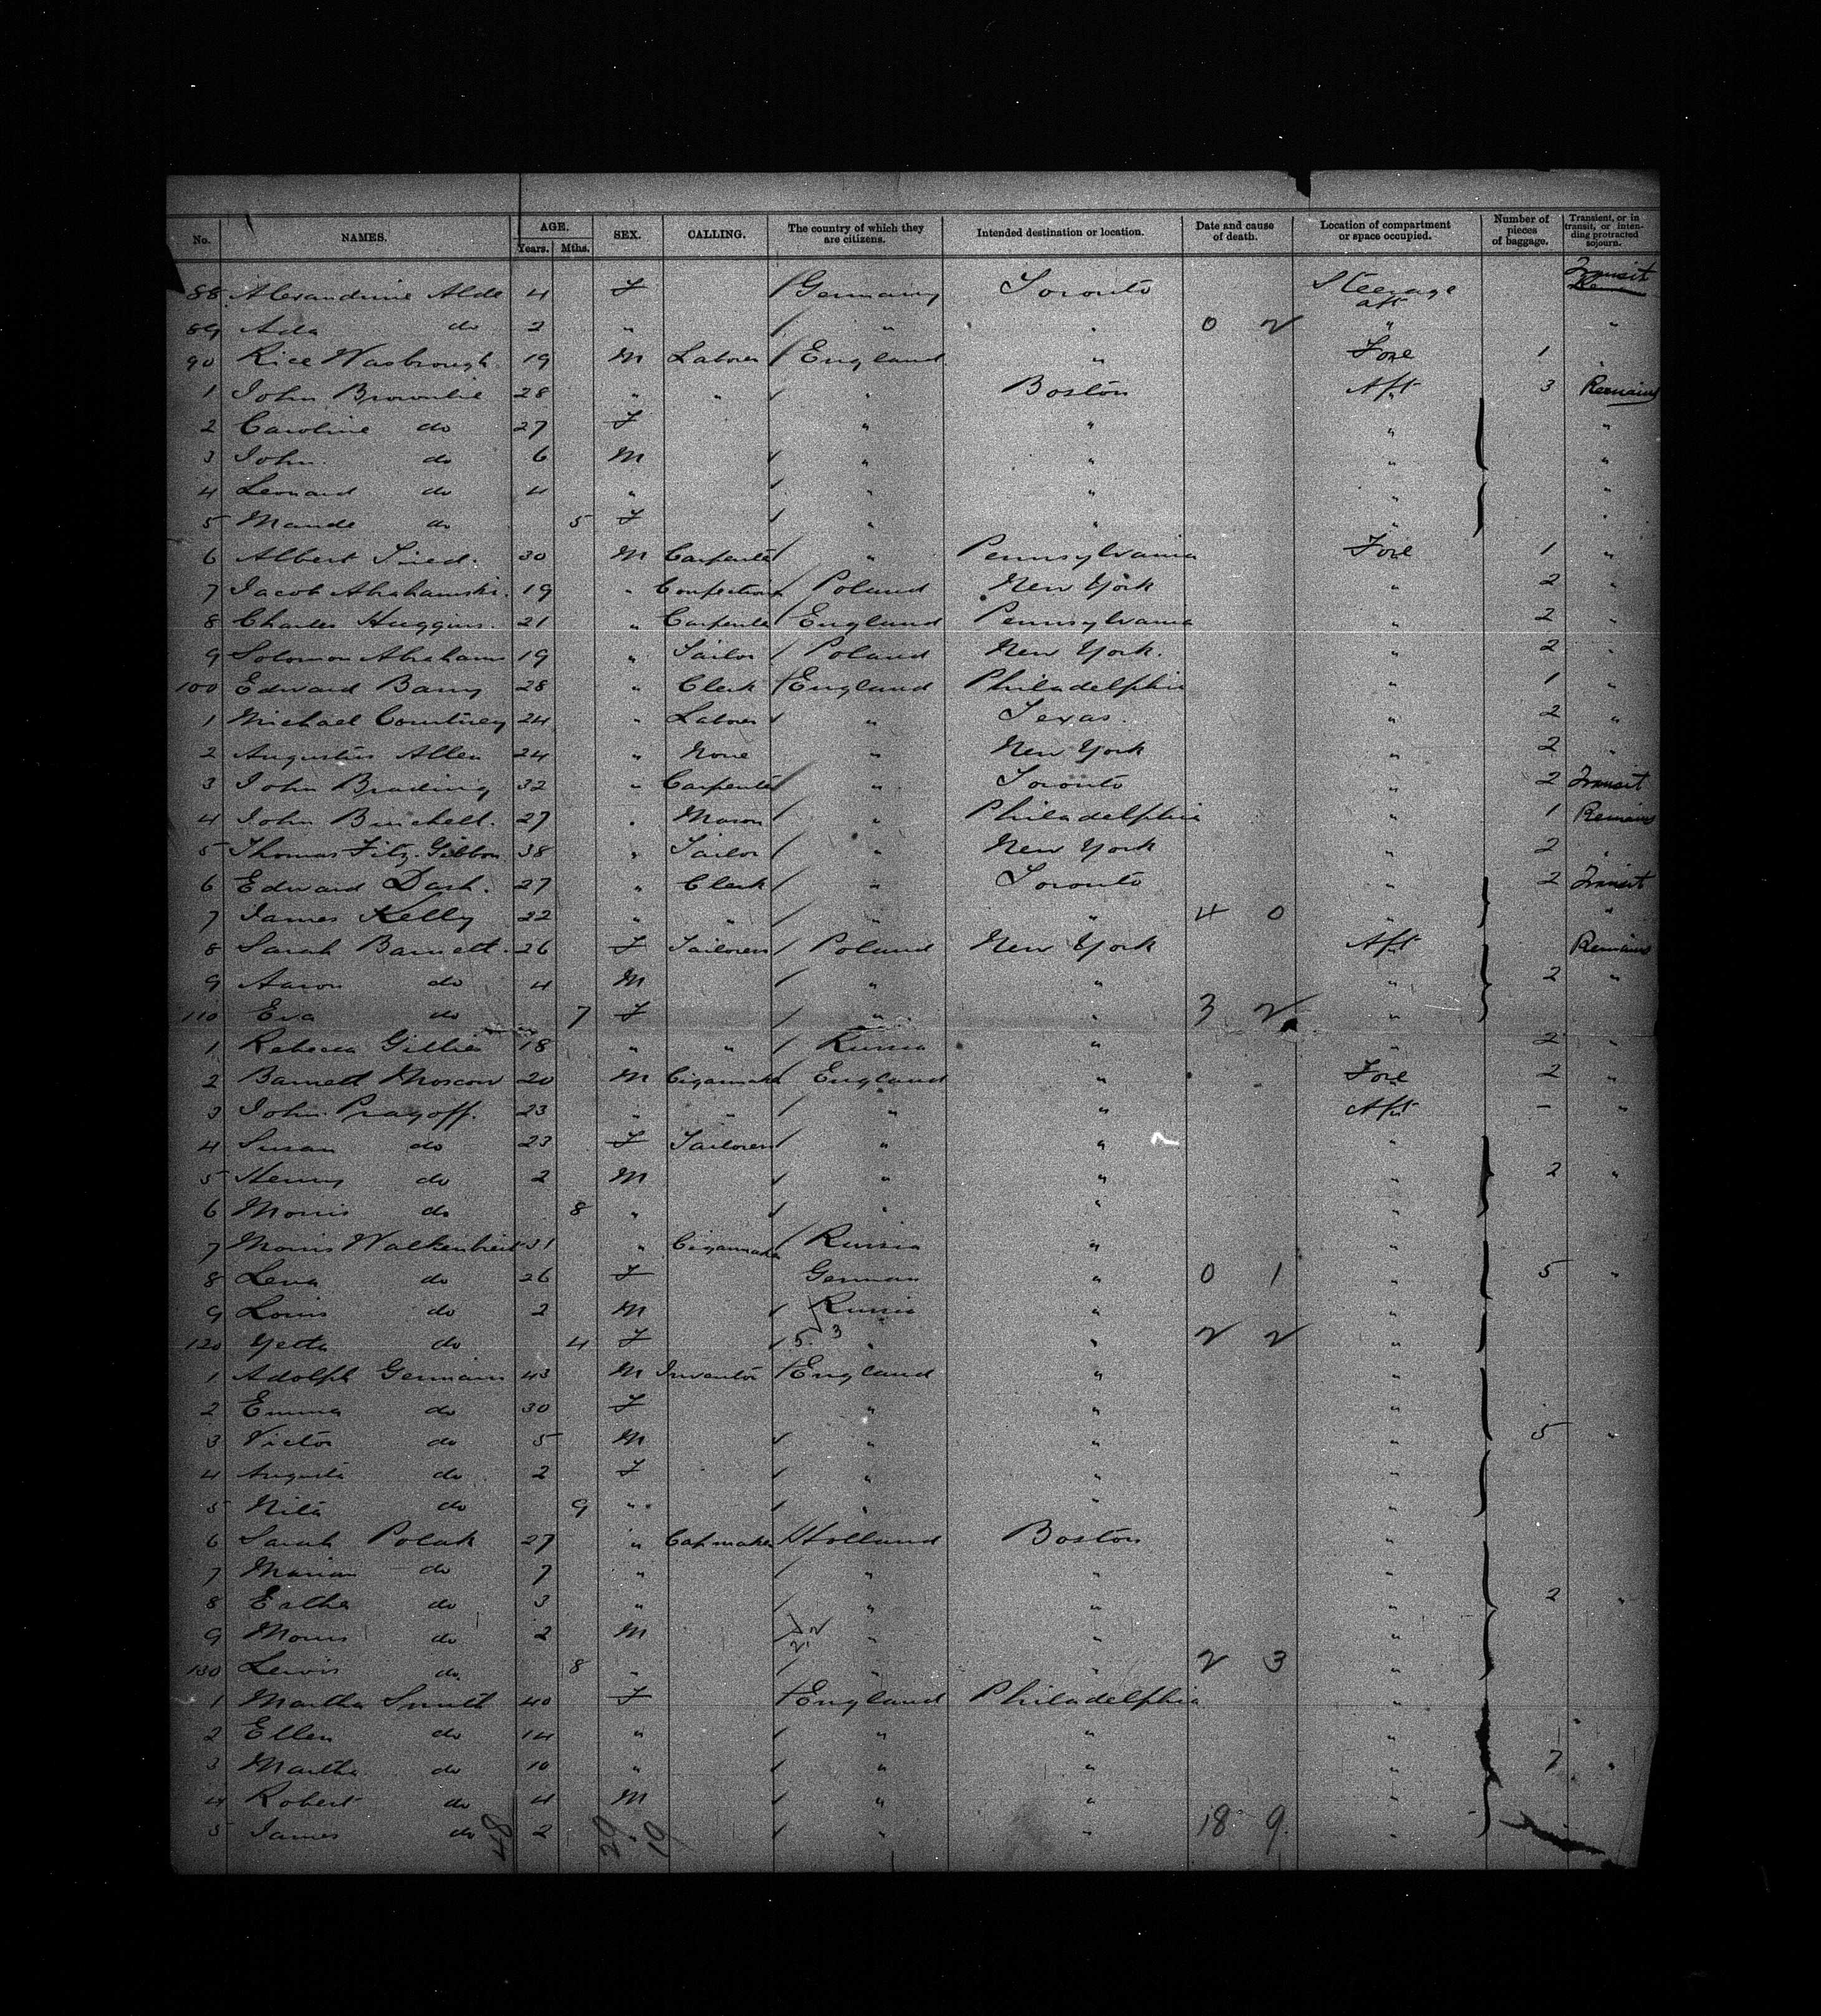 No. NAMES. AGE. Years. Mths. SEX. CALLING. The country of which they are citizens. Intended destination or location. Date and cause of death. Location of compartment or space occupied. Number of pieces of baggage. Transient, or in transit, or intending protracted sojourn.
88 Alexandrine Alde 4 F Germany Toronto Steerage aft Transit
89 Ada do 2 " " " 0 2 " "
90 Rice Wasbrough 19 M Laborer England " Fore 1 "
1 John Brownlie 28 " " " Boston Aft 3 Remains
2 Caroline do 27 F " " " "
3 John do 6 M " " " "
4 Leonard do 4 " " " " "
5 Maude do 5 F " " " "
6 Albert 30 M Carpenter " Pennsylvania Fore 1 "
7 Jacob Abrahamski 19 " Confectioner Poland New York " 2 "
8 Charles Huggins 21 " Carpenter England Pennsylvania " 2 "
9 Solomon Abrahams 19 " Tailor Poland New York. " 2 "
100 Edward Barry 28 " Clerk England Philadelphia " 1 "
1 Michael Courtney 24 " Laborer " Texas. " 2 "
2 Augustus Allen 24 " None " New York " 2 "
3 John Brading 32 " Carpenter " Toronto " 2 Transit
4 John Birchell. 27 " Mason " Philadelphia " 1 Remains
5 Thomas Fitz-Gibbon 38 " Tailor " New York " 2 "
6 Edward Dash. 27 " Clerk " Toronto " 2 Transit
7 James Kelly 22 " " " " 4 0 " "
8 Sarah Barnett 26 F Tailoress Poland New York Aft Remains
9 Aaron do 4 M " " " 2 "
110 Eva do 7 F " " 3 2 "
1 Rebecca 18 " " Russia " " 2 "
2 Barnett Moscow 20 M Cigarmaker England " Fore 2 "
3 John Pragoff. 23 " " " " Aft - "
4 Susan do 23 F Tailoress " " "
5 Henry do 2 M " " " 2 "
6 Morris do 8 " " " "
7 Morris 31 " Cigarmaker Russia " "
8 Lena do 26 F German " 0 1 " 5 "
9 Louis do 2 M Russia " "
120 Yetta do 4 F 5 3 " " 2 2 "
1 Adolph Germain 43 M Inventor England " "
2 Emma do 30 F " " "
3 Victor do 5 M " " " 5 "
4 Augusta do 2 F " " "
5 Nita do 9 " " " "
6 Sarah Polak 27 " Capmaker Holland Boston "
7 Marian do 7 " " " "
8 do 3 " " " " 2 "
9 Morris do 2 M 2 2 " " "
130 Lewis do 8 " " " 2 3 "
1 Martha Smith 40 F England Philadelphia "
2 Ellen do 14 " " " "
3 Martha do 10 " " " " 7 "
4 Robert do 4 M " " "
5 James do 2 " " " 18 9 "
48 29 19